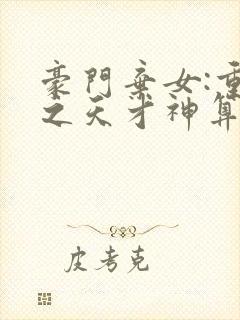 豪門棄女:重
之天才神算
皮考克